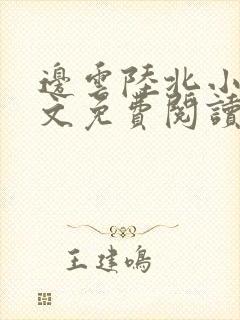 邊雲陸北小
文免費閱讀
王建鳴